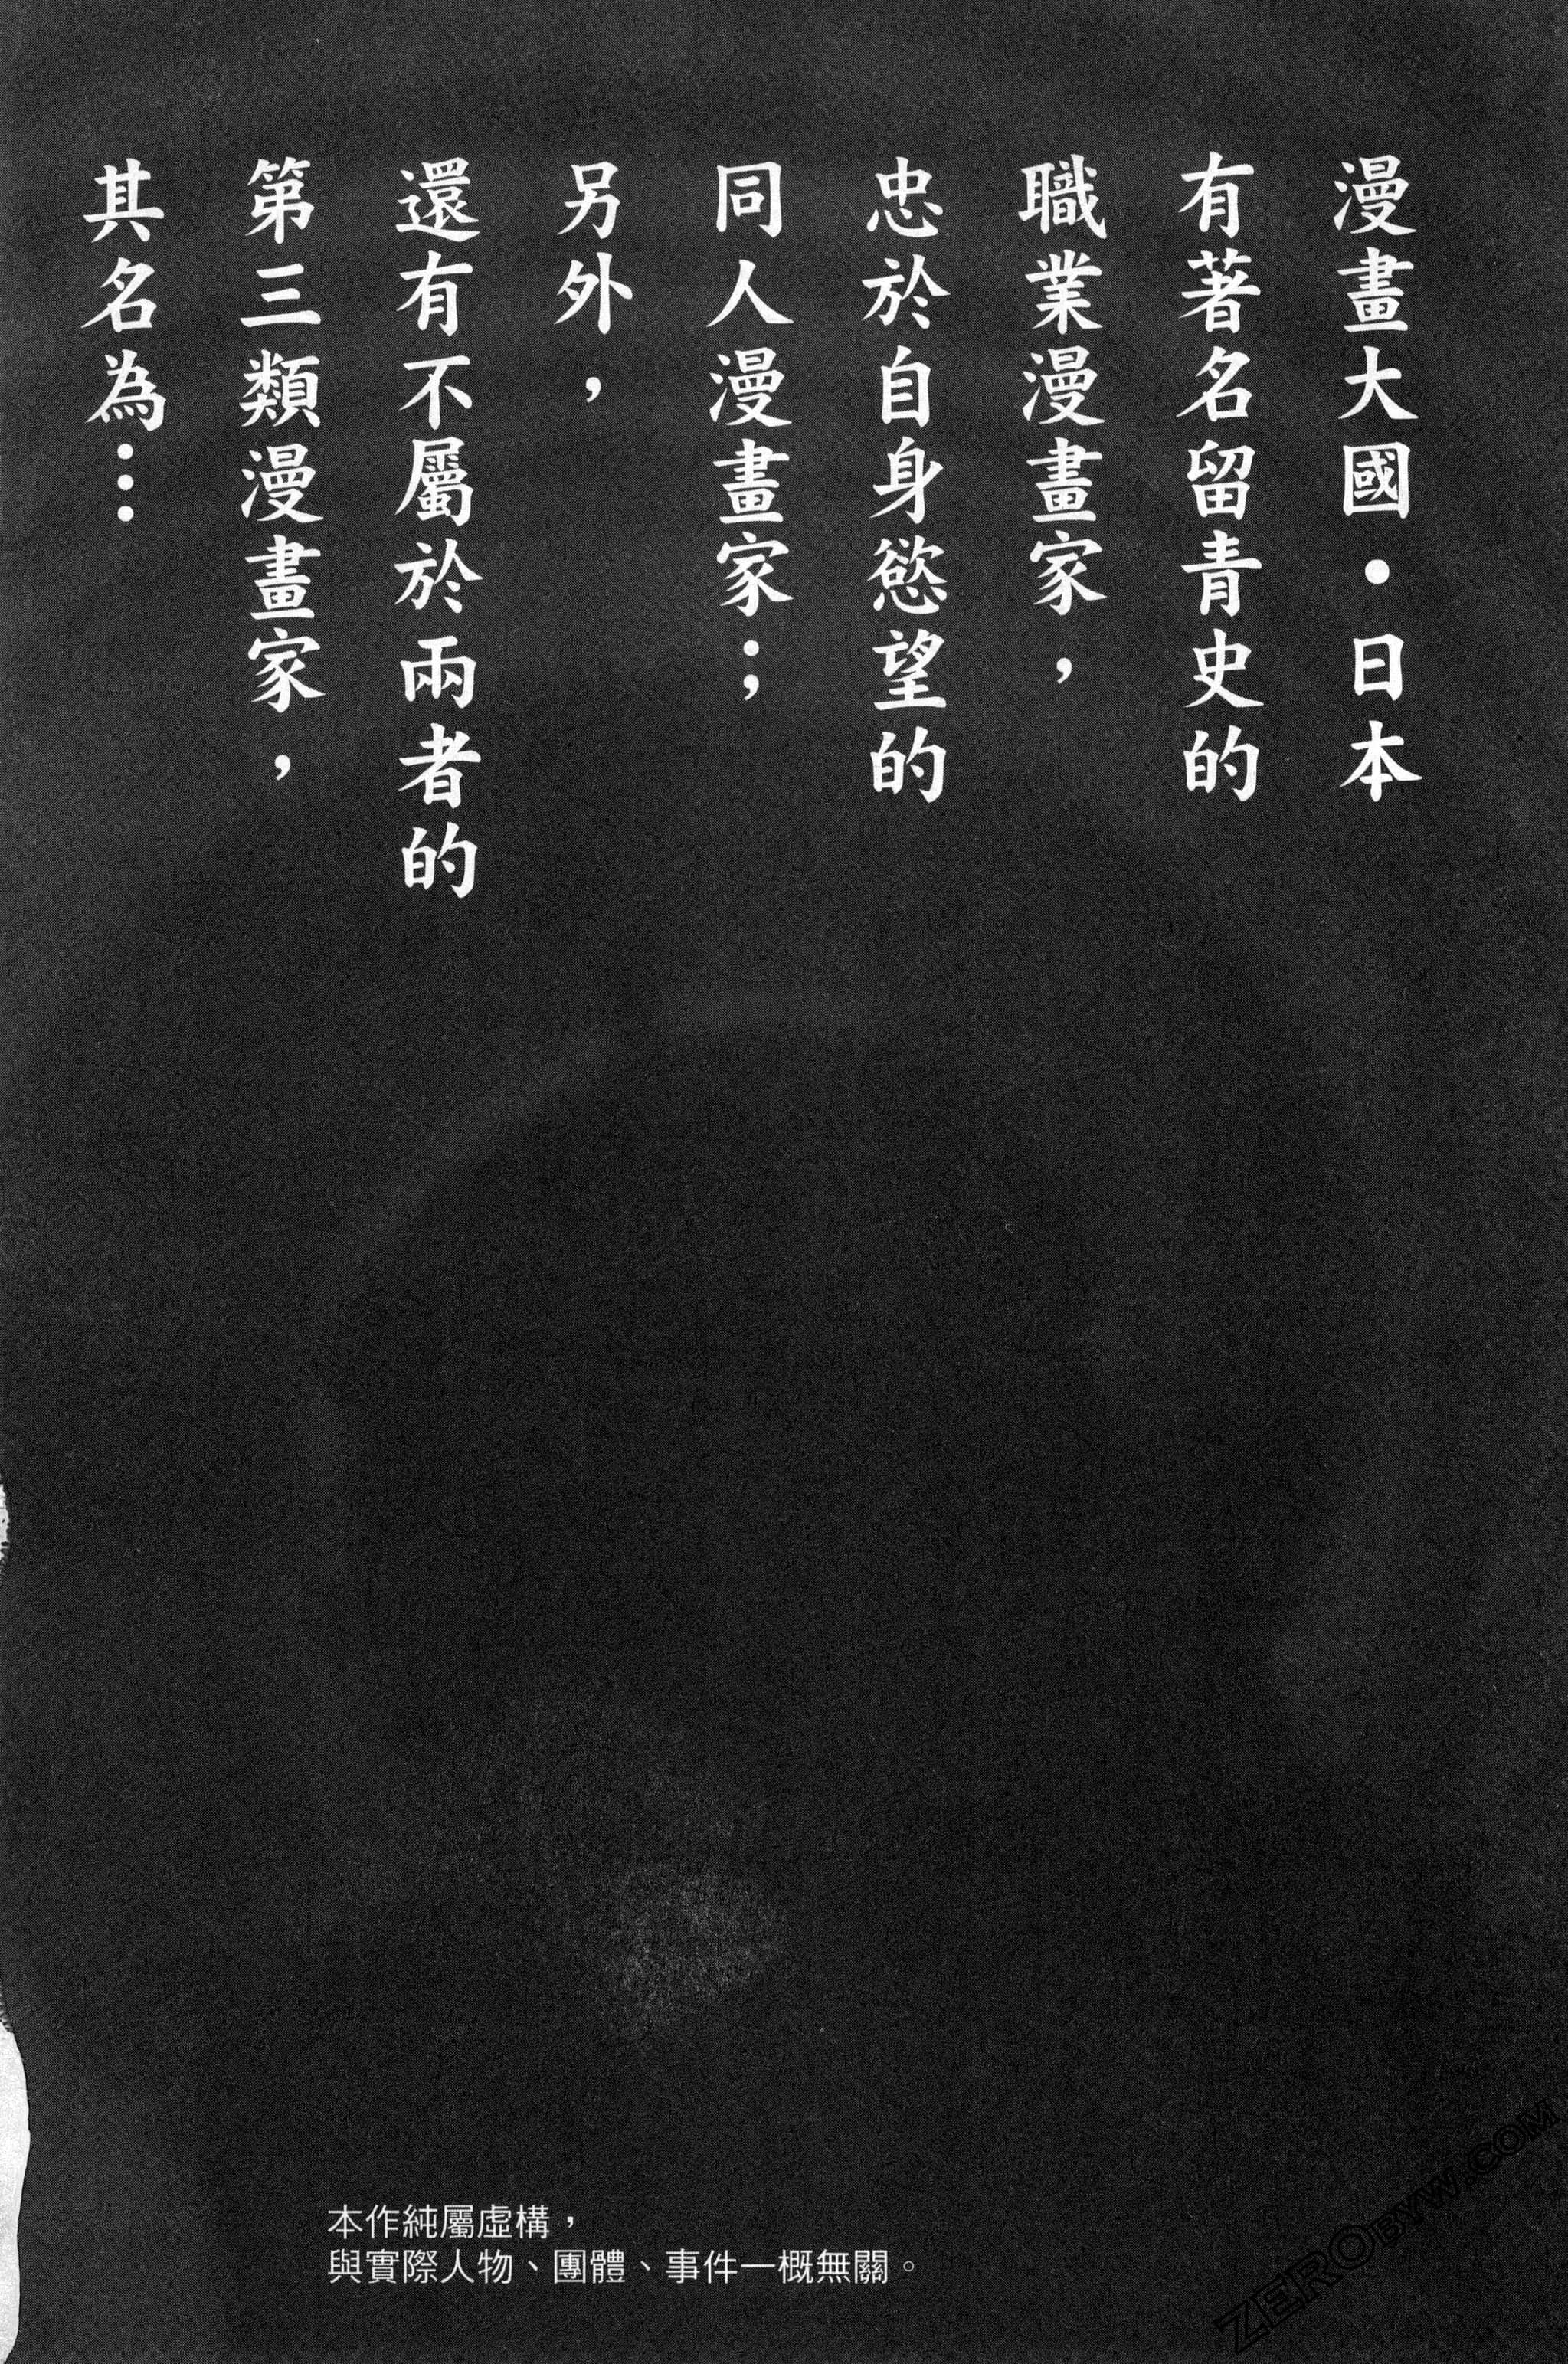 漫畫大國・日本
有著名留青史的
職業漫畫家，
忠於自身慾望的
同人漫畫家；
另外，
還有不屬於兩者的
第三類漫畫家，
其名為…
本作純屬虛構，
與實際人物、團體、事件一概無關。
ZEROBYW.COM